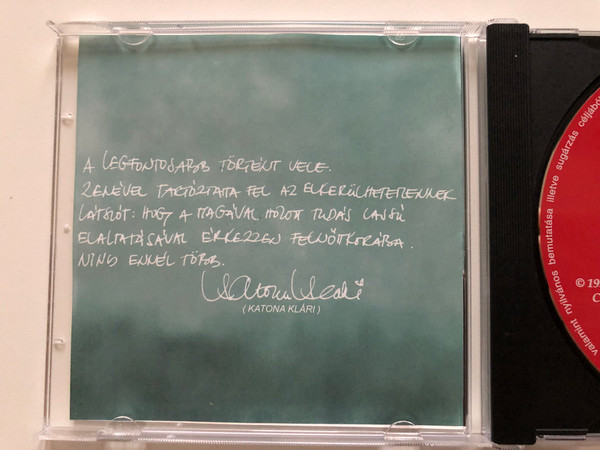 A LEGFONTOSABB TÖRTÉNT VELE.
ZENÉVEL TARTÓZTATTA FEL AZ ELKERÜLHETETLENNEK
LÁTSZÓT: HOGY A MAGÁVAL HOZOTT TUDÁS LASSÚ
ELALTATÁSÁVAL ÉRKEZZEN FELNŐTTKORÁBA.
NINCS ENNÉL TÖBB.
Katona Klári
( KATONA KLÁRI )
valamint nyilvános bemutatása illetve sugárzás céljából
© 19
C